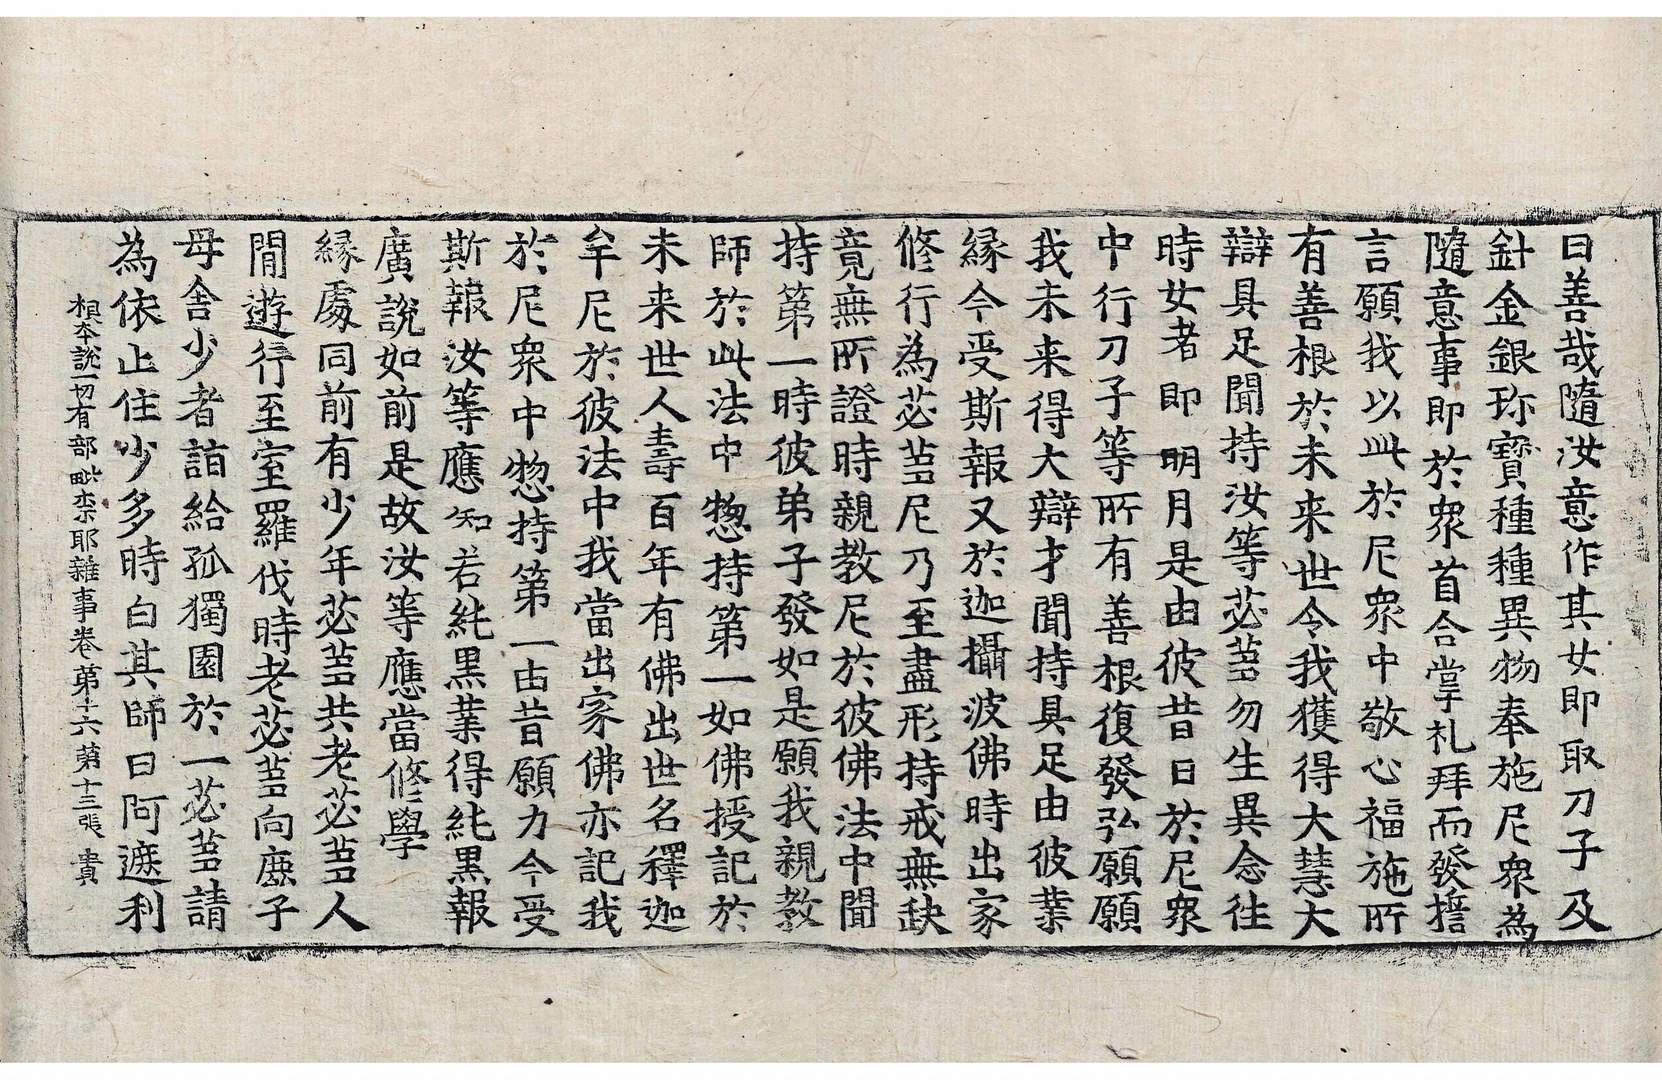 曰善哉隨汝意作其女即取刀子及
針金銀珎寶種種異物奉施尼衆為
隨意事即於衆首合掌礼拜而發擔
言願我以此於尼衆中敬心福施所
有善根於未来世令我獲得大慧大
辯具足聞持汝等苾蒭勿生異念往
時女者即明月是由彼昔日於尼衆
中行刀子等所有善根復發弘願願
我未来得大辯才聞持具足由彼業
緣今受斯報又於迦攝波佛時出家
修行為苾蒭尼乃至盡形持戒無缺
竟無所證時親教尼於彼佛法中聞
持第一時彼弟子發如是願我親教
師於此法中惣持第一如佛授記於
未来世人壽百年有佛出世名釋迦
牟尼於彼法中我當出家佛亦記我
於尼衆中惣持第一由昔願力今受
斯報汝等應知若純黒業得純黒報
廣說如前是故汝等應當修學
緣處同前有少年苾蒭共老苾蒭人
閒遊行至室羅伐時老苾蒭向鹿子
母舍少者詣給孤獨園於一苾蒭請
為依止住少多時白其師曰阿遮利
根本說一切有部毗奈耶雜事卷第十六 第十三張 貴